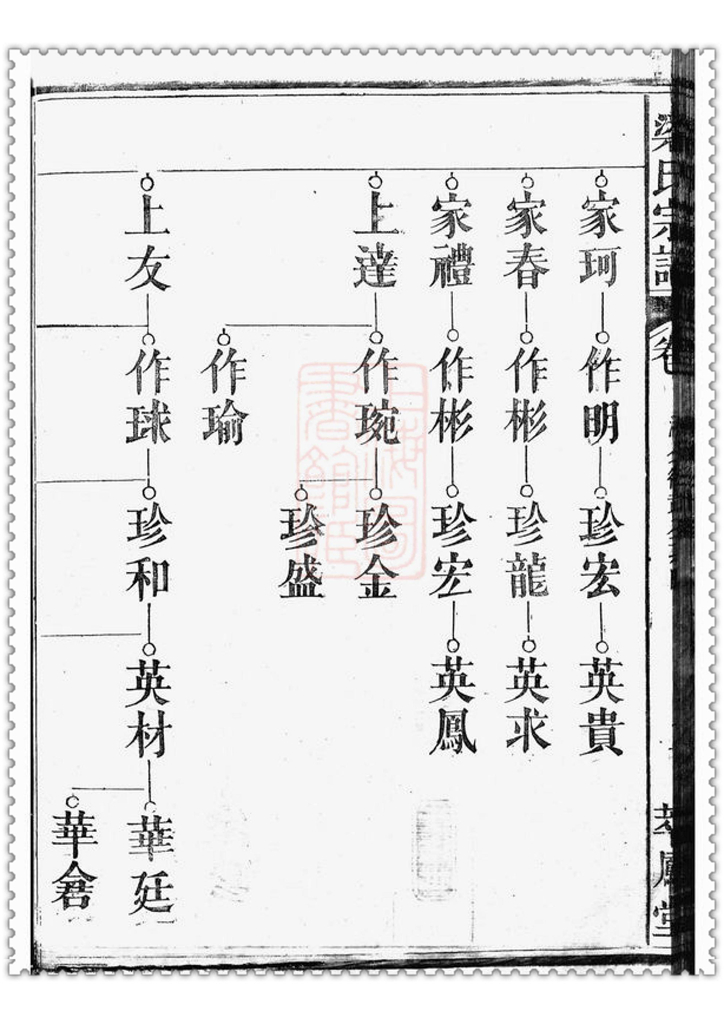 氏宗譜
卷
鳳堂
家珂
作明
珍宏
英貴
家春
作彬
珍龍
英求
家禮
作彬
珍宏
英鳳
上達
作琬
珍金
珍盛
作瑜
上友
作球
珍和
英材
華廷